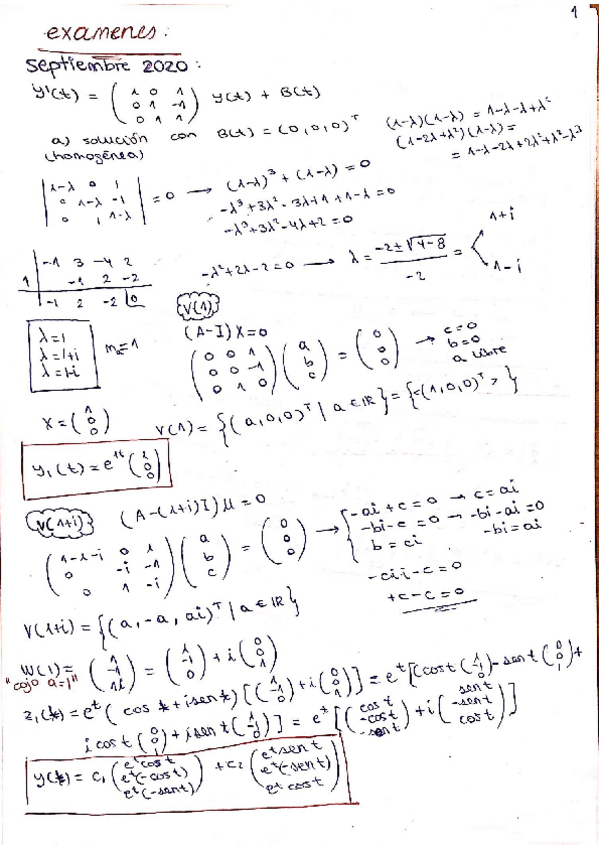 1
examenes:
Septiembre 2020:
y'(t) = ( 1 0 1 / 0 1 -1 / 0 1 1 ) y(t) + B(t)
a) solución con B(t) = (0,0,0)ᵀ
(homogénea)
(1-λ)(1-λ) = 1-λ-λ+λ²
(1-2λ+λ²)(1-λ) =
= 1-λ-2λ+2λ²+λ²-λ³
| 1-λ 0 1 / 0 1-λ -1 / 0 1 1-λ | = 0 → (1-λ)³ + (1-λ) = 0
-λ³+3λ²-3λ+1+1-λ=0
-λ³+3λ²-4λ+2=0
-1 3 -4 2
1 -1 2 -2
-1 2 -2 0
-λ²+2λ-2=0 → λ = (-2±√(4-8))/(-2) = 1+i
1-i
λ=1
λ=1+i
λ=1-i
V(1)
(A-I)X=0
( 0 0 1 / 0 0 -1 / 0 1 0 ) ( a / b / c ) = ( 0 / 0 / 0 ) → c=0
b=0
a libre
X = ( 1 / 0 / 0 )
V(1) = {(a,0,0)ᵀ | a∈ℝ} = {<(1,0,0)ᵀ>}
y₁(t) = e^{1t} ( 1 / 0 / 0 )
V(1+i) (A-(1+i)I)μ = 0
( 1-1-i 0 1 / 0 -i -1 / 0 1 -i ) ( a / b / c ) = ( 0 / 0 / 0 ) → -ai+c=0 → c=ai
-bi-c=0 → -bi-ai=0
b=ci -bi=ai
-cii-c=0
+c-c=0
V(1+i) = {(a,-a,ai)ᵀ | a∈ℝ}
"cojo a=1"
( 1 / -1 / 1i ) = ( 1 / -1 / 0 ) + i ( 0 / 0 / 1 )
z₁(t) = eᵗ (cos t + i sen t) [( 1 / -1 / 0 ) + i ( 0 / 0 / 1 )] = eᵗ [(cos t ( 1 / -1 / 0 ) - sen t ( 0 / 0 / 1 ) +
i cos t ( 0 / 0 / 1 ) + i sen t ( 1 / -1 / 0 )] = eᵗ [( cos t / -cos t / -sen t ) + i ( sen t / -sen t / cos t )]
y(t) = c₁ ( eᵗ cos t / eᵗ(-cos t) / eᵗ(-sen t) ) + c₂ ( eᵗ sen t / eᵗ(-sen t) / eᵗ cos t )